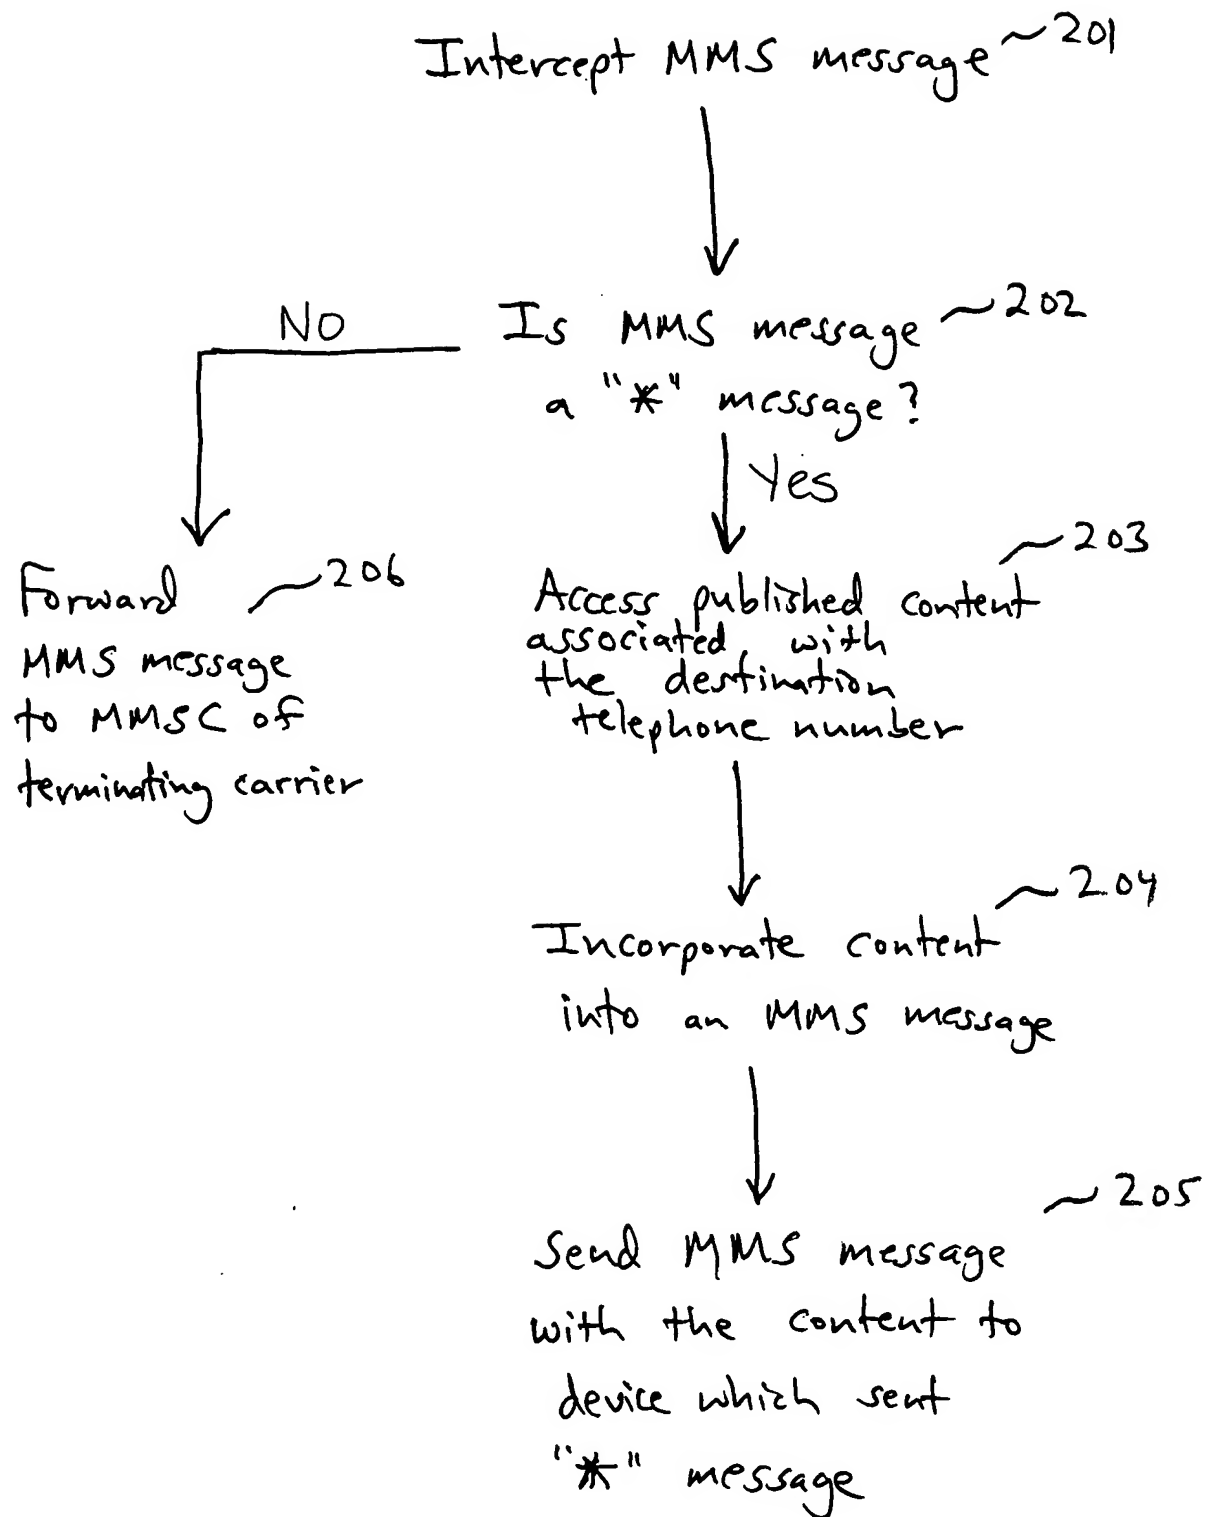 Intercept MMS message 201
Is MMS message 202
a "*" message?
NO
Yes
Forward 206
MMS message
to MMSC of
terminating carrier
203
Access published content
associated with
the destination
telephone number
204
Incorporate content
into an MMS message
205
Send MMS message
with the content to
device which sent
"*" message